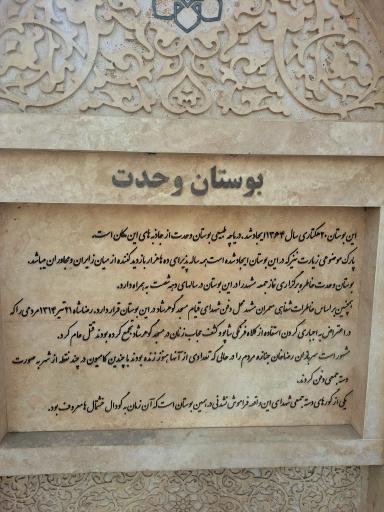 بوستان وحدت
این بوستان ۲۰ هکتاری سال ۱۳۶۴ ایجاد شد، دریاچه طبیعی بوستان وحدت از جاذبه های این مکان است.
پارک موضوعی زیارت نیز که در این بوستان ایجاد شده است همه ساله پذیرای ده ها هزار بازدید کننده از میان زایران و مجاوران میباشد.
بوستان وحدت خاطره برگزاری نماز جمعه مشهد را در این بوستان در سالهای دهه شصت به همراه دارد.
همچنین بر اساس خاطرات شفاهی معمران شهر محل دفن شهدای قیام مسجد گوهرشاد در این بوستان قرار دارد، رضا شاه ۲۱ تیر ۱۳۱۴ مردمی را که
در اعتراض به اجباری کردن استفاده از کلاه فرنگی شاپو و کشف حجاب زنان در مسجد گوهرشاد تجمع کرده بودند قتل عام کرد.
مشهور است سربازان رضاخان جنازه مردم را در حالی که تعدادی از آنها هنوز زنده بودند با چندین کامیون در چند نقطه از شهر به صورت
دسته جمعی دفن کردند.
یکی از گورهای دسته جمعی شهدای این واقعه فراموش نشدنی در همین بوستان است که آن زمان به گودال خشتمال ها معروف بود.